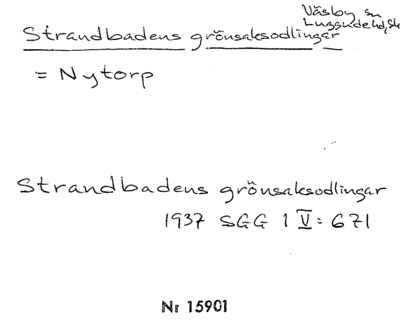 Väsby sn
Luggude hd, Sk
Strandbadens grönsaksodlingar
= Nytorp
Strandbadens grönsaksodlingar
1937 SGG 1 V: 671
Nr 15901